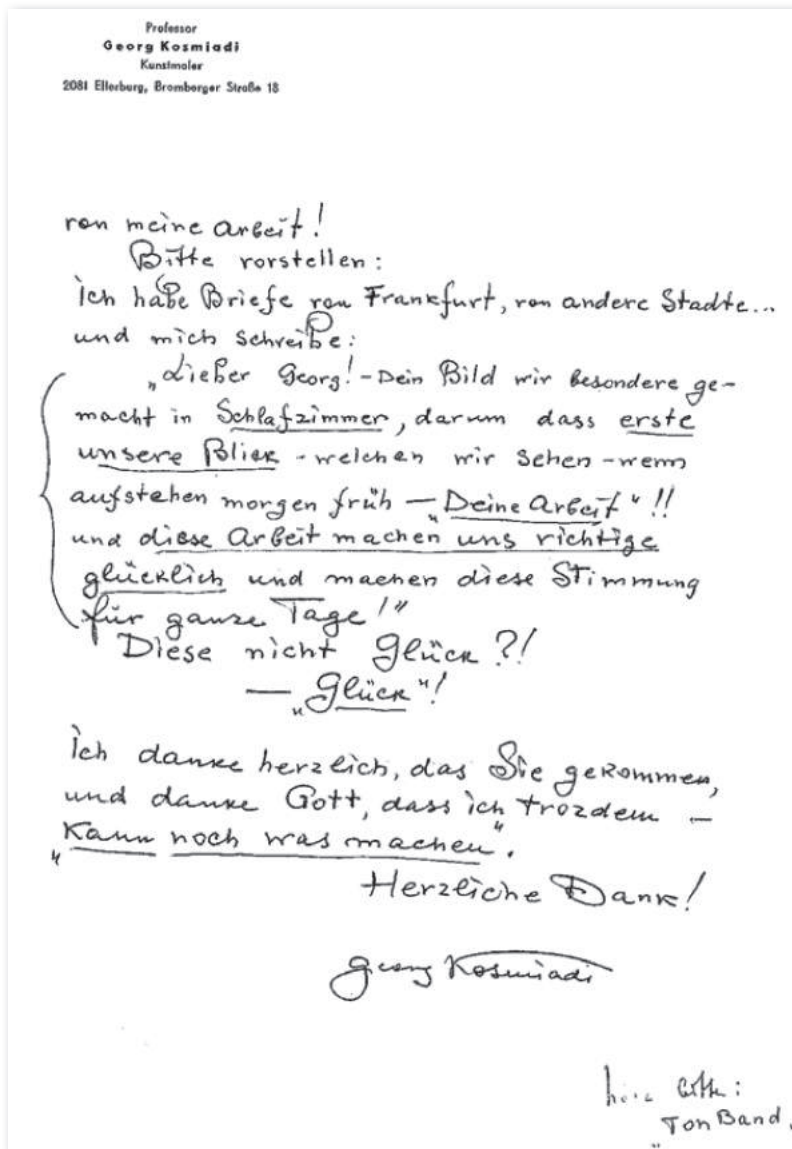 Professor
Georg Kosmiadi
Kunstmaler
2081 Ellerburg, Bromberger Straße 18
von meine Arbeit!
Bitte vorstellen:
Ich habe Briefe von Frankfurt, von andere Stadte...
und mich schreibe:
„Lieber Georg! - Dein Bild wir besondere ge-
macht in Schlafzimmer, darum dass erste
unsere Blick - welchen wir sehen - wenn
aufstehen morgen früh — „Deine Arbeit"!!
und diese Arbeit machen uns richtige
glücklich und machen diese Stimmung
für ganze Tage!"
Diese nicht Glück?!
— „Glück"!
Ich danke herzlich, das Sie gekommen,
und danke Gott, dass ich trozdem —
„Kann noch was machen".
Herzliche Dank!
Georg Kosmiadi
bitte:
„Ton Band